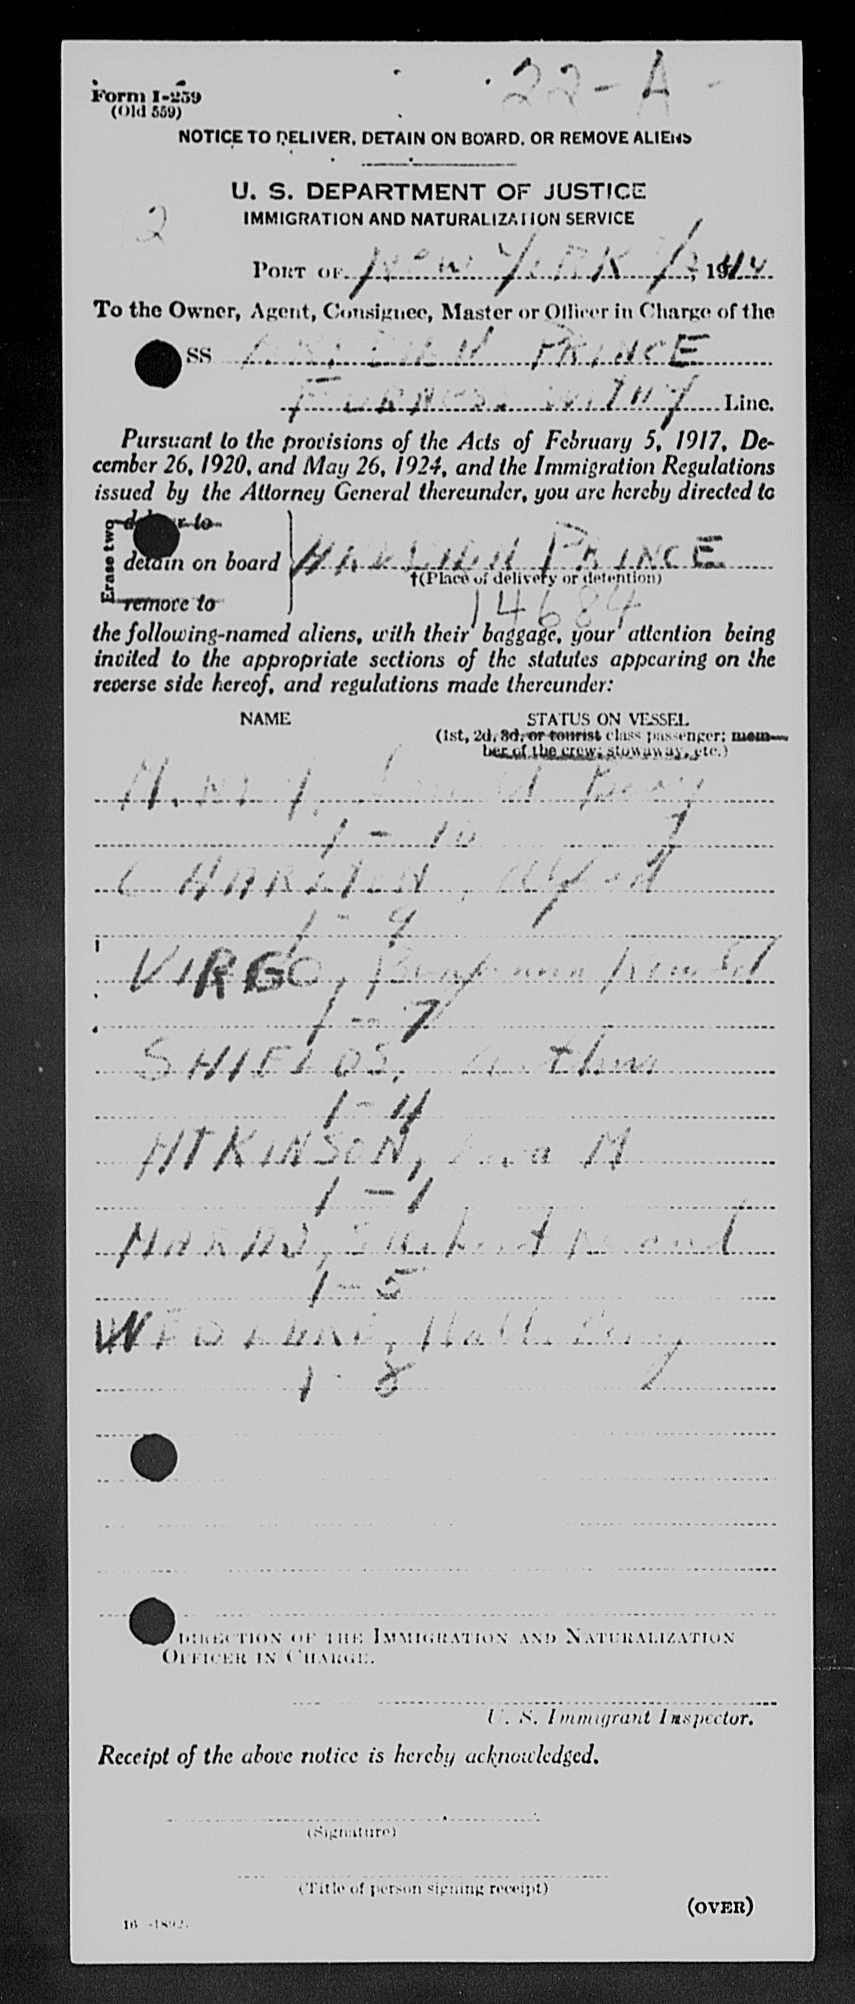 22-A-
Form I-259
(Old 559)
NOTICE TO DELIVER, DETAIN ON BOARD, OR REMOVE ALIENS
U. S. DEPARTMENT OF JUSTICE
2
IMMIGRATION AND NATURALIZATION SERVICE
PORT OF NEW YORK 1944
To the Owner, Agent, Consignee, Master or Officer in Charge of the
SS PRINCE
FURNESS WITHY Line.
Pursuant to the provisions of the Acts of February 5, 1917, De-
cember 26, 1920, and May 26, 1924, and the Immigration Regulations
issued by the Attorney General thereunder, you are hereby directed to
Erase two
deliver to
detain on board PRINCE
†(Place of delivery or detention)
remove to
14684
the following-named aliens, with their baggage, your attention being
invited to the appropriate sections of the statutes appearing on the
reverse side hereof, and regulations made thereunder:
NAME STATUS ON VESSEL
(1st, 2d, 3d, or tourist class passenger; mem-
ber of the crew; stowaway, etc.)
1-10
CHARLTON, Alfred
1-9
VIRGO, Benjamin
1-7
SHIELDS, Arthur
1-4
ATKINSON, M
1-1
1-5
1-8
DIRECTION OF THE IMMIGRATION AND NATURALIZATION
OFFICER IN CHARGE.
U. S. Immigrant Inspector.
Receipt of the above notice is hereby acknowledged.
(Signature)
(Title of person signing receipt)
(OVER)